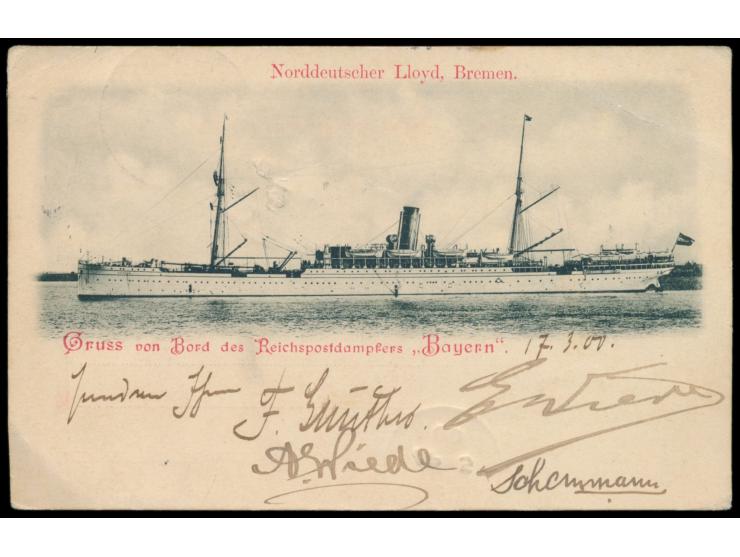 Norddeutscher Lloyd, Bremen.
Gruss von Bord des Reichspostdampfers „Bayern“. 17.3.00.
senden Ihnen F. Günther. E. Wiede
A. Wiede
Schenmann